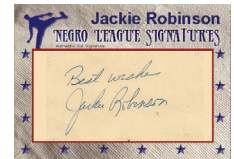 Jackie Robinson
NEGRO LEAGUE SIGNATURES
Authentic Cut Signature
Best wishes
Jackie Robinson